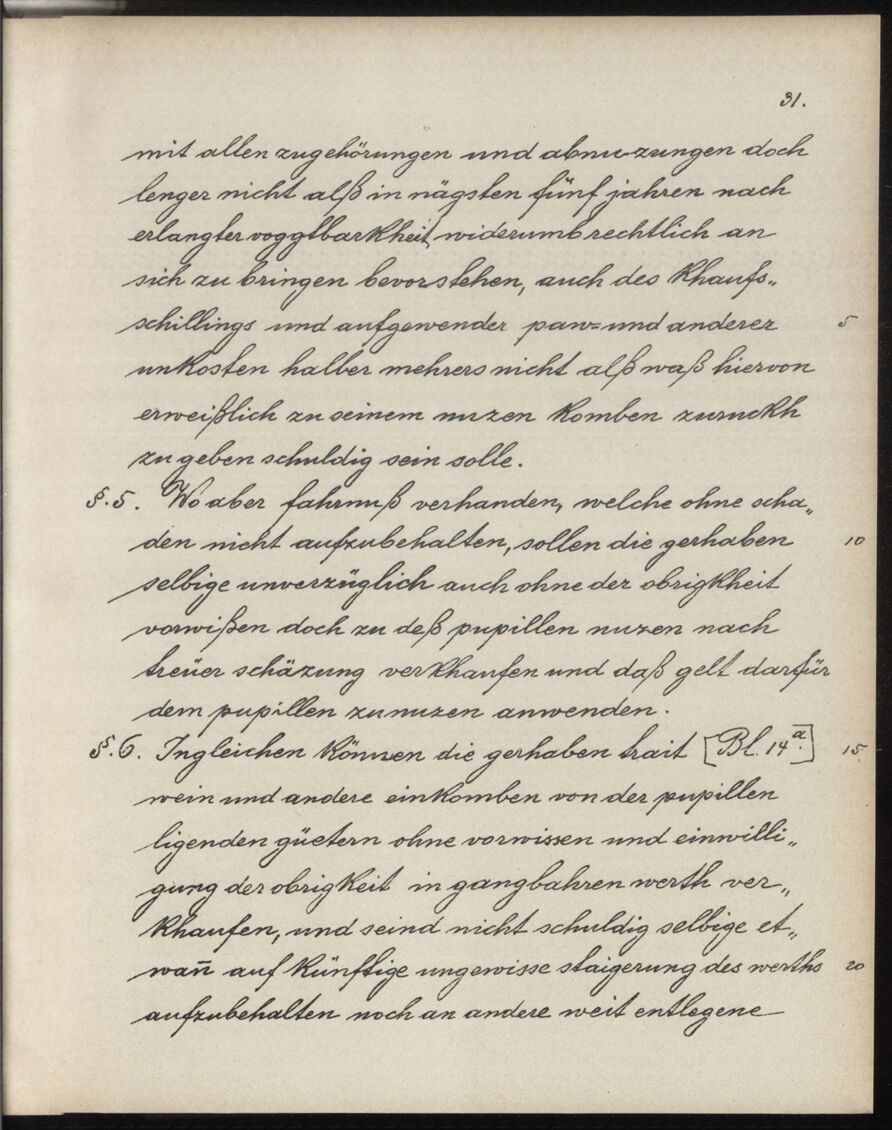 31.
mit allen zugehörungen und abnuzungen doch
lenger nicht alß in nägsten fünf jahren nach
erlangter voggtbarkheit, widerumb rechtlich an
sich zu bringen bevorstehen, auch des khaufs„
schillings und aufgewender paw= und anderer 5
unkosten halber mehrers nicht alß waß hiervon
erweißlich zu seinem nuzen komben zuruckh
zu geben schuldig sein solle.
§. 5. Wo aber fahrnuß verhanden, welche ohne scha„
den nicht aufzubehalten, sollen die gerhaben 10
selbige unverzüglich auch ohne der obrigkheit
vorwißen doch zu deß pupillen nuzen nach
treüer schäzung verkhaufen und daß gelt darfür
dem pupillen zu nuzen anwenden.
§. 6. Ingleichen können die gerhaben trait [Bl. 14a.] 15.
wein und andere einkomben von der pupillen
ligenden güetern ohne vorwissen und einwilli„
gung der obrigkeit in gangbahren werth ver„
khaufen, und seind nicht schuldig selbige et„
wan̄ auf künftige ungewisse staigerung des werths 20
aufzubehalten noch an andere weit entlegene